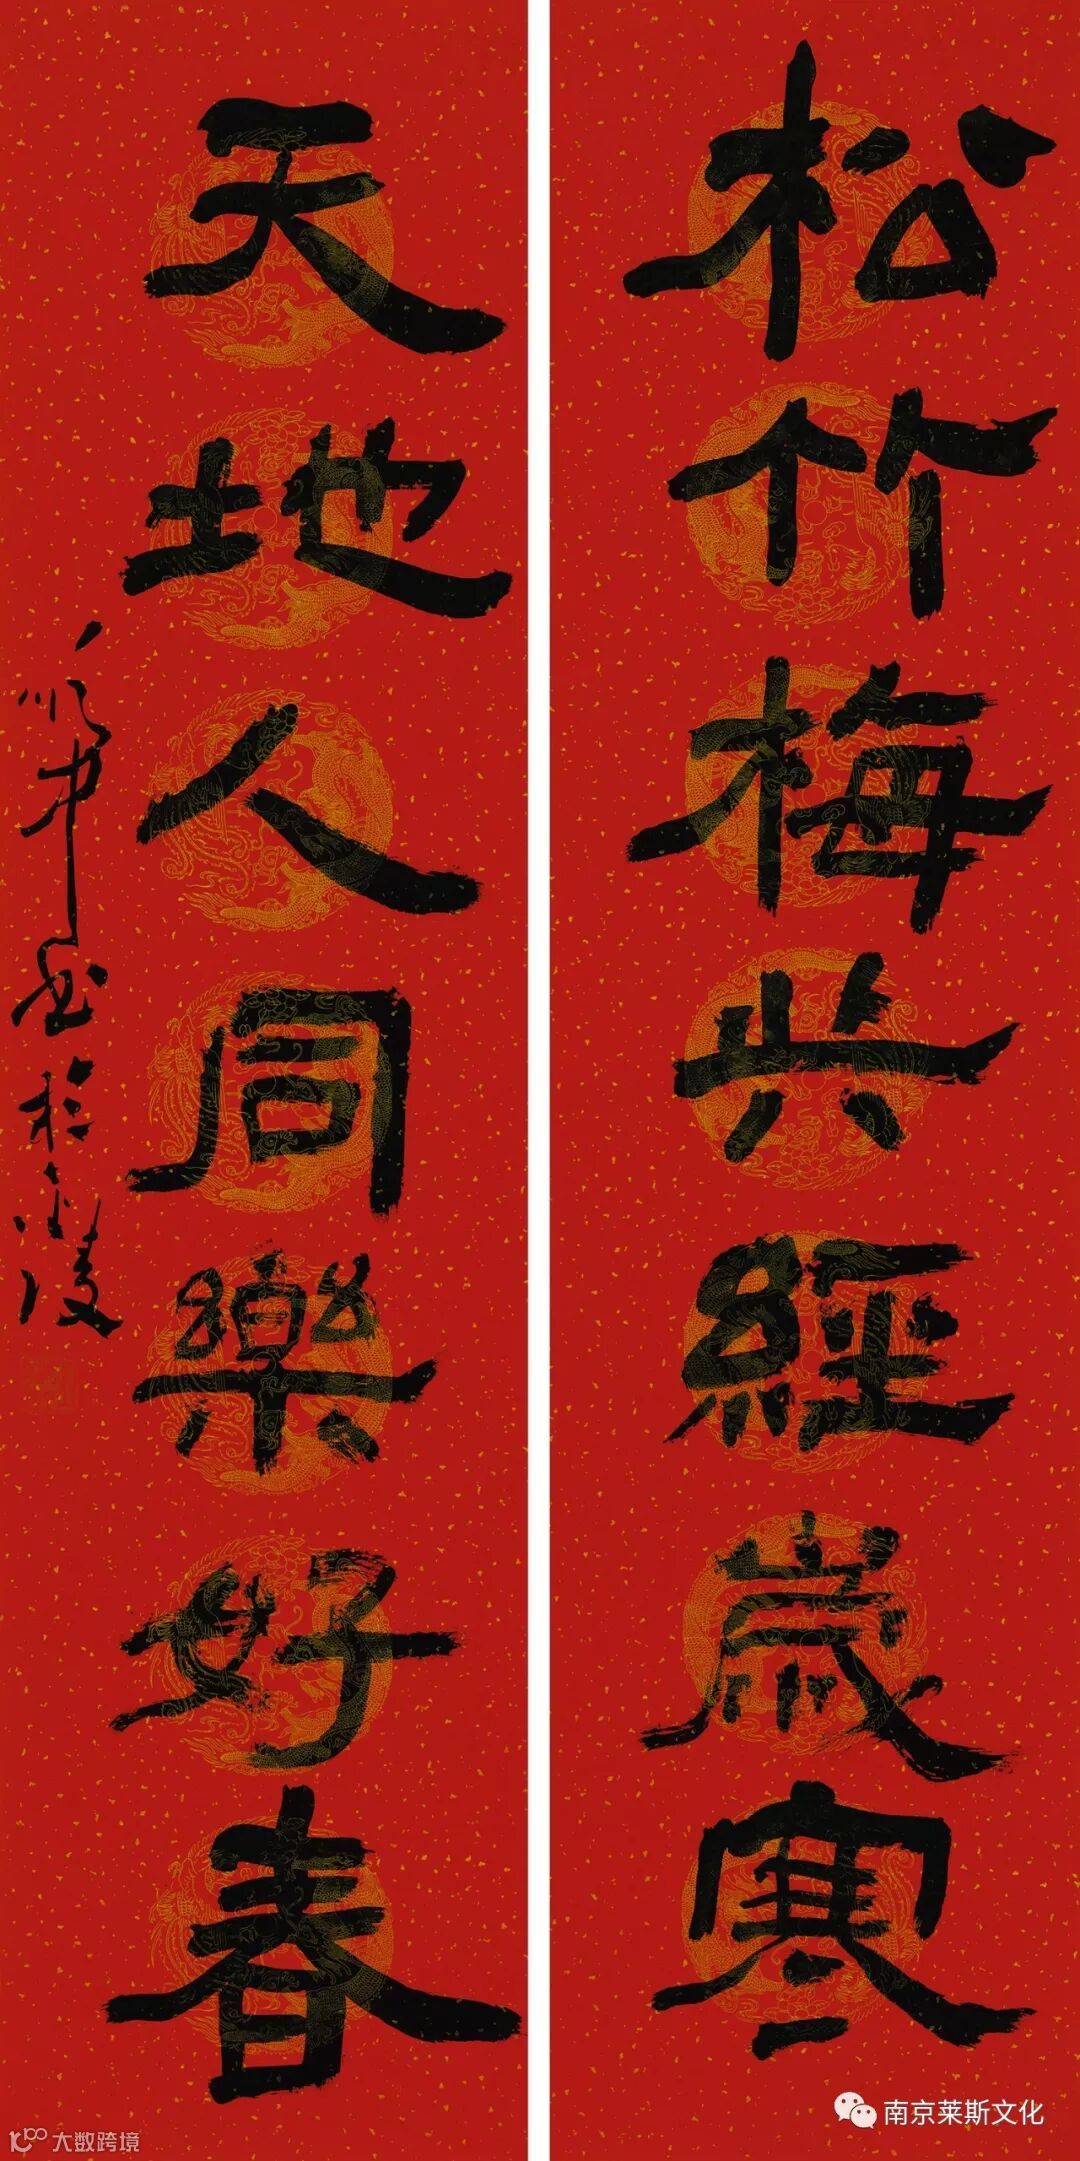 松竹梅共經歲寒
天地人同樂好春
順中書於金陵
南京莱斯文化
大数跨境